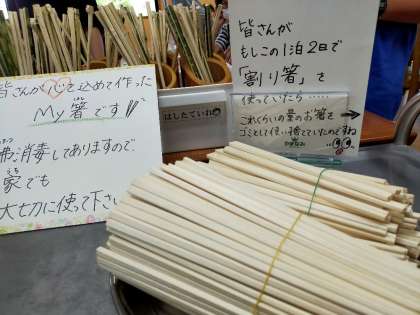 皆さんが心を込めて作った
My箸です!!
消毒してありますので
家でも
大切に使って下さい
はしたていれ
皆さんが
もしこの1泊2日で
「割り箸」を
使っていたら……
これくらいの量のお箸を
ゴミとして使い捨てていたのですね